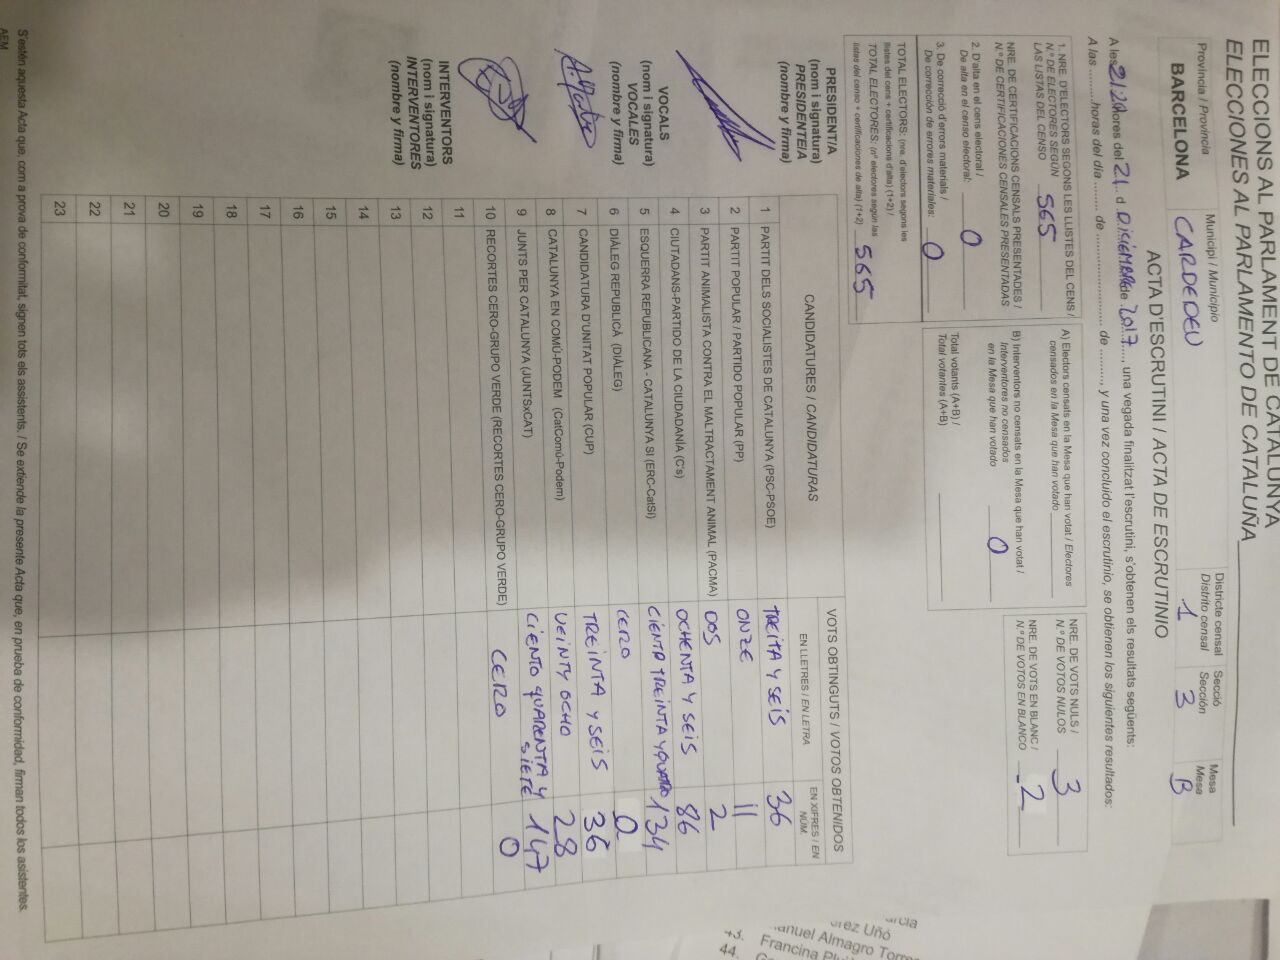 ELECCIONS AL PARLAMENT DE CATALUNYA
ELECCIONES AL PARLAMENTO DE CATALUÑA
Província / Provincia
BARCELONA
Municipi / Municipio
CARDEDEU
Districte censal
Distrito censal
1
Secció
Sección
3
Mesa
Mesa
B
ACTA D'ESCRUTINI / ACTA DE ESCRUTINIO
A les 21:20 hores del 21 d Diciembre de 2017, una vegada finalitzat l'escrutini, s'obtenen els resultats següents:
A las ......... horas del día ......... de ......................... de ........., y una vez concluido el escrutinio, se obtienen los siguientes resultados:
1. NRE. D'ELECTORS SEGONS LES LLISTES DEL CENS /
N.º DE ELECTORES SEGÚN
LAS LISTAS DEL CENSO 565
NRE. DE CERTIFICACIONS CENSALS PRESENTADES /
N.º DE CERTIFICACIONES CENSALES PRESENTADAS
2. D'alta en el cens electoral /
De alta en el censo electoral: 0
3. De correcció d'errors materials /
De corrección de errores materiales: 0
TOTAL ELECTORS: (nre. d'electors segons les
llistes del cens + certificacions d'alta) (1+2) /
TOTAL ELECTORES: (nº electores según las
listas del censo + certificaciones de alta) (1+2) 565
A) Electors censats en la Mesa que han votat / Electores
censados en la Mesa que han votado
B) Interventors no censats en la Mesa que han votat /
Interventores no censados
en la Mesa que han votado 0
Total votants (A+B) /
Total votantes (A+B)
NRE. DE VOTS NULS /
N.º DE VOTOS NULOS 3
NRE. DE VOTS EN BLANC /
N.º DE VOTOS EN BLANCO 2
PRESIDENT/A
(nom i signatura)
PRESIDENTE/A
(nombre y firma)
VOCALS
(nom i signatura)
VOCALES
(nombre y firma)
INTERVENTORS
(nom i signatura)
INTERVENTORES
(nombre y firma)
CANDIDATURES / CANDIDATURAS
VOTS OBTINGUTS / VOTOS OBTENIDOS
EN LLETRES / EN LETRA
EN XIFRES / EN NÚM.
1 PARTIT DELS SOCIALISTES DE CATALUNYA (PSC-PSOE) TREITA Y SEIS 36
2 PARTIT POPULAR / PARTIDO POPULAR (PP) ONZE 11
3 PARTIT ANIMALISTA CONTRA EL MALTRACTAMENT ANIMAL (PACMA) DOS 2
4 CIUTADANS-PARTIDO DE LA CIUDADANÍA (C's) OCHENTA Y SEIS 86
5 ESQUERRA REPUBLICANA - CATALUNYA SI (ERC-CatSI) CIENTO TREINTA Y 134
6 DIÀLEG REPUBLICÀ (DIÀLEG) CERO 0
7 CANDIDATURA D'UNITAT POPULAR (CUP) TREINTA Y SEIS 36
8 CATALUNYA EN COMÚ-PODEM (CatComú-Podem) VEINTY OCHO 28
9 JUNTS PER CATALUNYA (JUNTSxCAT) CIENTO QUARENTA Y SIETE 147
10 RECORTES CERO-GRUPO VERDE (RECORTES CERO-GRUPO VERDE) CERO 0
11
12
13
14
15
16
17
18
19
20
21
22
23
S'estén aquesta Acta que, com a prova de conformitat, signen tots els assistents. / Se extiende la presente Acta que, en prueba de conformidad, firman todos los asistentes.
AEM
Uñó
Almagro
44. Francina